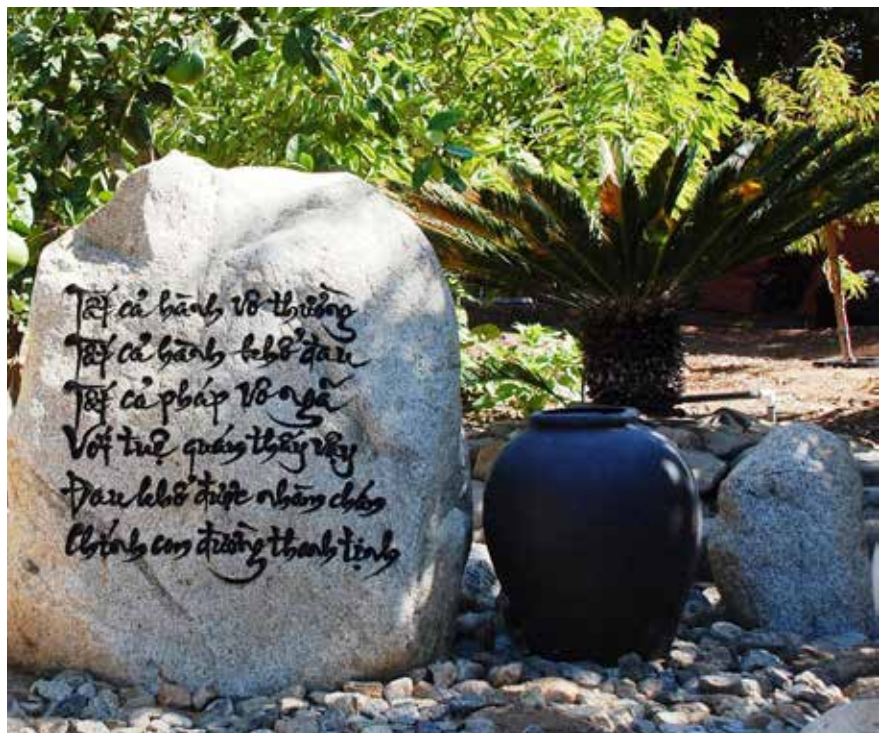 Tất cả hành vô thường
Tất cả hành khổ đau
Tất cả pháp vô ngã
Với tuệ quán thấy vậy
Đau khổ được nhàm chán
Chính con đường thanh tịnh